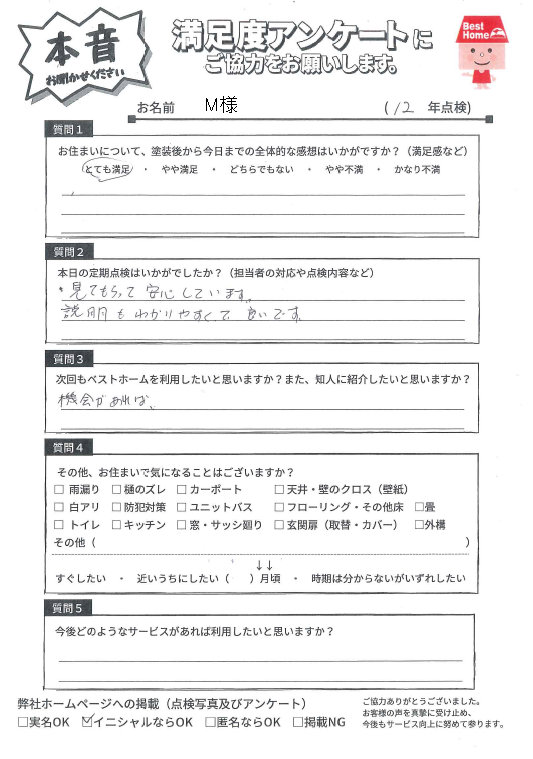 本音
お聞かせください
満足度アンケートに
ご協力をお願いします。
Best Home
お名前 M様 (12 年点検)
質問1
お住まいについて、塗装後から今日までの全体的な感想はいかがですか?(満足感など)
とても満足 ・ やや満足 ・ どちらでもない ・ やや不満 ・ かなり不満
質問2
本日の定期点検はいかがでしたか?(担当者の対応や点検内容など)
・見てもらって安心しています。
説明もわかりやすくて良いです。
質問3
次回もベストホームを利用したいと思いますか?また、知人に紹介したいと思いますか?
機会があれば、
質問4
その他、お住まいで気になることはございますか?
□ 雨漏り □ 樋のズレ □ カーポート □ 天井・壁のクロス(壁紙)
□ 白アリ □ 防犯対策 □ ユニットバス □ フローリング・その他床 □畳
□ トイレ □ キッチン □ 窓・サッシ廻り □ 玄関扉(取替・カバー) □外構
その他( )
↓↓
すぐしたい ・ 近いうちにしたい( )月頃 ・ 時期は分からないがいずれしたい
質問5
今後どのようなサービスがあれば利用したいと思いますか?
弊社ホームページへの掲載(点検写真及びアンケート)
□実名OK ☑イニシャルならOK □匿名ならOK □掲載NG
ご協力ありがとうございました。
お客様の声を真摯に受け止め、
今後もサービス向上に努めて参ります。